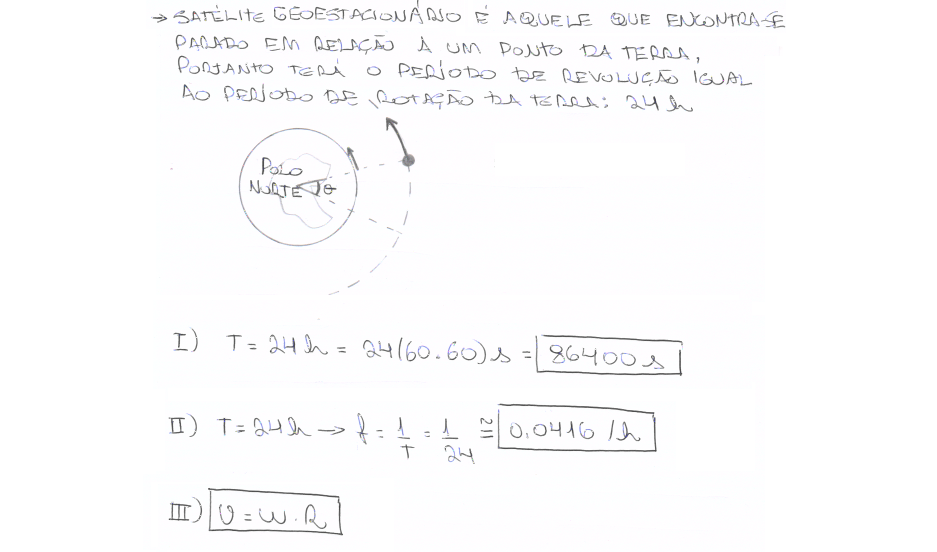 → SATÉLITE GEOESTACIONÁRIO É AQUELE QUE ENCONTRA-SE
PARADO EM RELAÇÃO À UM PONTO DA TERRA,
PORTANTO TERÁ O PERÍODO DE REVOLUÇÃO IGUAL
AO PERÍODO DE ROTAÇÃO DA TERRA: 24 h
POLO
NORTE θ
I) T = 24 h = 24(60.60) s = 86400 s
II) T = 24 h → f = 1/T = 1/24 ≅ 0.0416 /h
III) v = w . R